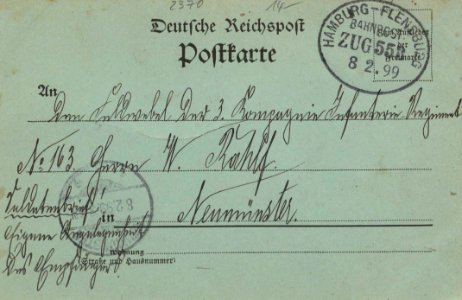 2370 14-
Deutsche Reichspost
Postkarte
HAMBURG-FLENSBURG
BAHNPOST
ZUG 553
8 2.99
An
den Feldwebel der 3. Kompagnie Infanterie-Regiment
No. 163 Herrn W.
Soldatenbrief in Neumünster.
Eigene Angelegenheit
des Empfängers.
Wohnung
(Straße und Hausnummer)
8.2.99